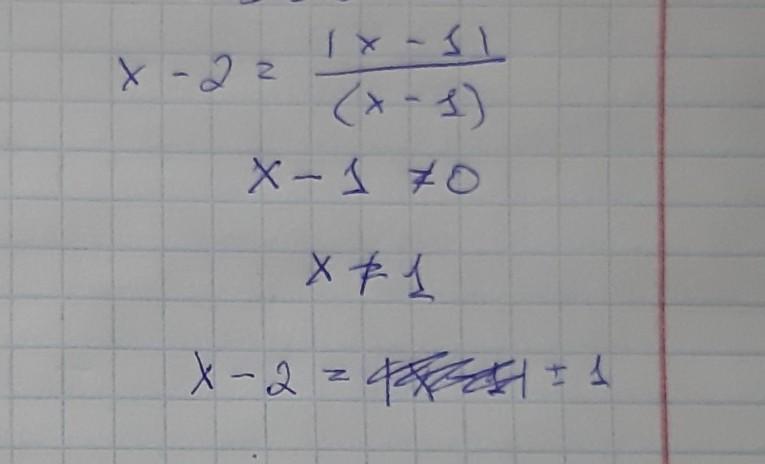 x - 2 = |x - 1| / (x - 1)
x - 1 ≠ 0
x ≠ 1
x - 2 = ± 1